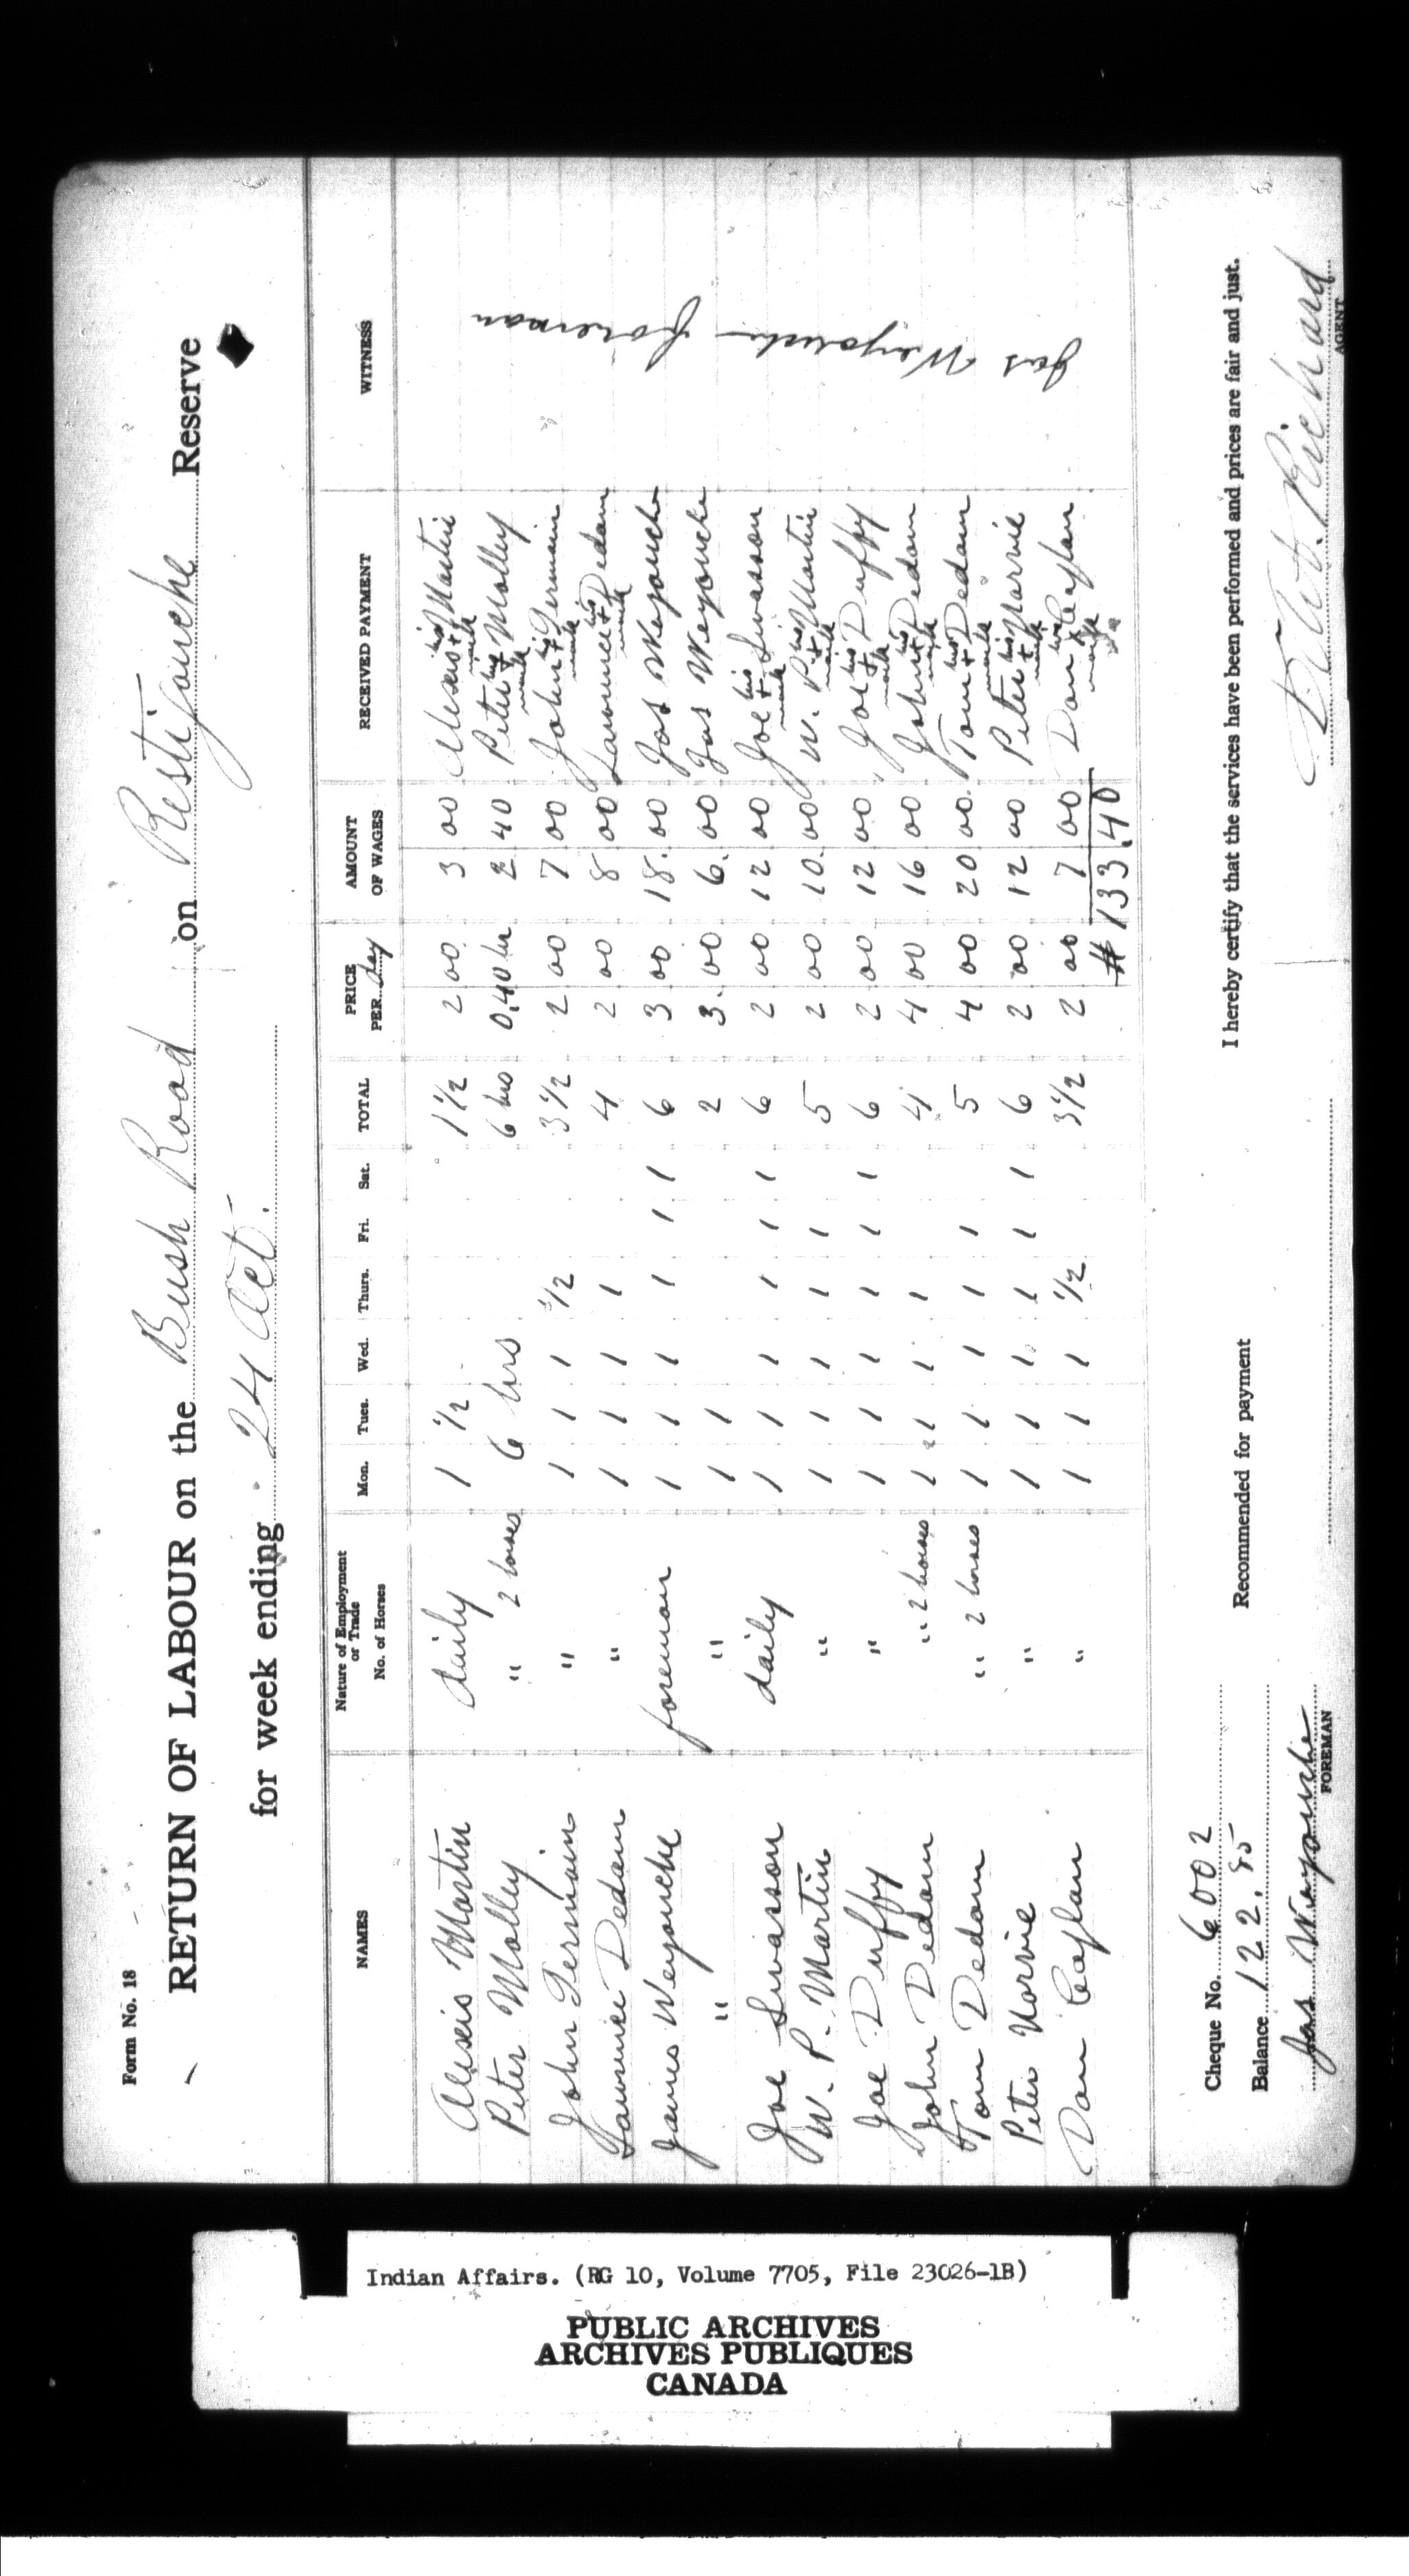 Form No. 18
RETURN OF LABOUR on the Bush Road on Restigouche Reserve
for week ending 24 Oct.
NAMES Nature of Employment or Trade No. of Horses Mon. Tues. Wed. Thurs. Fri. Sat. TOTAL PRICE PER day AMOUNT OF WAGES RECEIVED PAYMENT WITNESS
Alexis Martin daily 1 1/2 1 1/2 2 00 3 00 Alexis his + mark Martin
Peter Molley " 2 horses 6 hrs 6 hrs 0.40 hr 2 40 Peter his + mark Molley
John Germain " 1 1 1 1/2 3 1/2 2 00 7 00 John his + mark Germain
Lawrnee Dedam " 1 1 1 1 4 2 00 8 00 Lawrnee his + mark Dedam
James Weyouche foreman 1 1 1 1 1 1 6 3 00 18.00 Jas Weyouche
" " 1 1 2 3.00 6.00 Jas Weyouche
Joe Swasson daily 1 1 1 1 1 1 6 2 00 12 00 Joe his + mark Swasson
W. P. Martin " 1 1 1 1 1 5 2 00 10.00 W. P. his + mark Martin
Joe Duffy " 1 1 1 1 1 1 6 2 00 12 00 Joe his + mark Duffy
John Dedam " 2 horses 1 1 1 1 4 4 00 16 00 John his + mark Dedam
Tom Dedam " 2 horses 1 1 1 1 1 5 4 00 20 00 Tom his + mark Dedam
Peter Narvie " 1 1 1 1 1 1 6 2 00 12 00 Peter his + mark Narvie
Dan Caplan " 1 1 1 1/2 3 1/2 2 00 7 00 Dan his x mark Caplan
Jas Weyouche foreman
# 133.40
Cheque No. 6002
Balance 122.85
Recommended for payment
I hereby certify that the services have been performed and prices are fair and just.
Jas Weyouche
FOREMAN
Richard
AGENT
Indian Affairs. (RG 10, Volume 7705, File 23026-1B)
PUBLIC ARCHIVES
ARCHIVES PUBLIQUES
CANADA